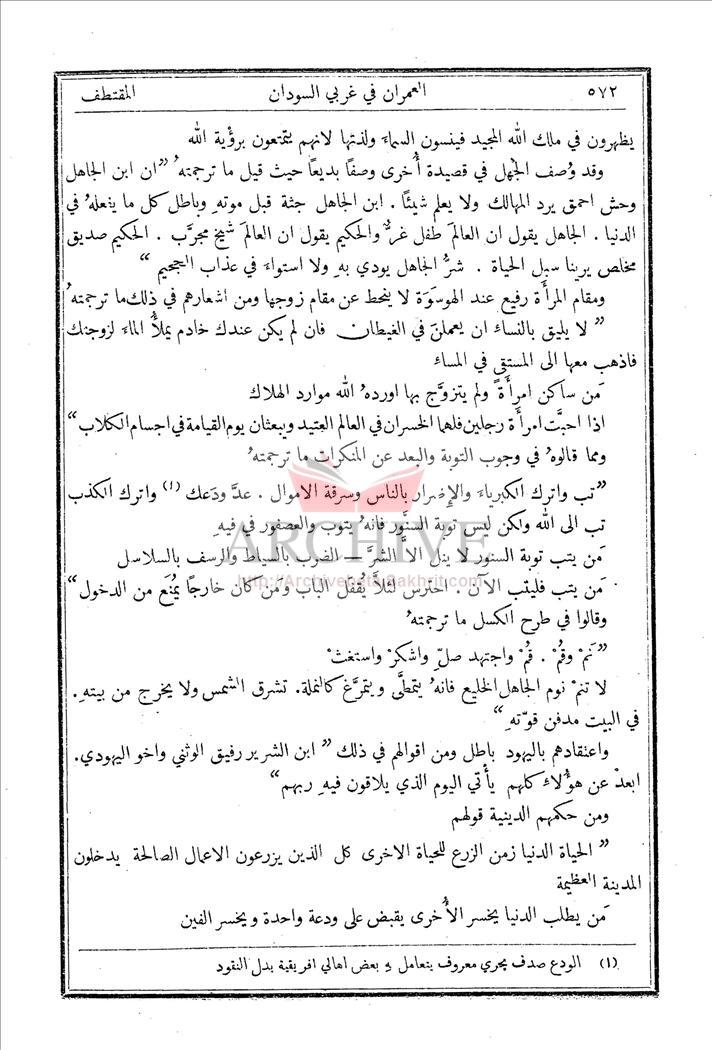 ٥٧٢ العمران في غربي السودان المقتطف
يظهرون في ملك الله المجيد فينسون السماء ولذتها لانهم يتمتعون برؤية الله
وقد وُصف الجهل في قصيدة أُخرى وصفًا بديعًا حيث قيل ما ترجمتهُ „ ان ابن الجاهل
وحش احمق يرد المهالك ولا يعلم شيئًا . ابن الجاهل جثة قبل موتهِ وباطل كل ما يفعلهُ في
الدنيا . الجاهل يقول ان العالمَ طفل غرٌّ والحكيم يقول ان العالمَ شيخ مجرَّب . الحكيم صديق
مخلص يرينا سبل الحياة . شرُّ الجاهل يودي بهِ ولا استواءَ في عذاب الجحيم “
ومقام المرأَة رفيع عند الهوسَوَة لا ينحط عن مقام زوجها ومن اشعارهم في ذلك ما ترجمتهُ
„ لا يليق بالنساء ان يعملنَ في الغيطان فان لم يكن عندك خادم يملأُ الماءَ لزوجتك
فاذهب معها الى المستقى في المساء
مَن ساكن امرأَةً ولم يتزوَّج بها اوردهُ الله موارد الهلاك
اذا احبَّت امرأَة رجلين فلهما الخسران في العالم العتيد ويبعثان يوم القيامة في اجسام الكلاب “
ومما قالوهُ في وجوب التوبة والبعد عن المنكرات ما ترجمتهُ
„ تب واترك الكبرياءَ والإضرار بالناس وسرقة الاموال . عدَّ ودَعك (١) واترك الكذب
تب الى الله ولكن ليس توبة السنَّور فانهُ يتوب والعصفور في فيهِ
مَن يتب توبة السنور لا ينل الاَّ الشرَّ — الضرب بالسياط والرسف بالسلاسل
مَن يتب فليتب الآن . احترس لئلاَّ يُقفَل الباب ومَن كان خارجًا يُمنَع من الدخول “
وقالوا في طرح الكسل ما ترجمتهُ
„ نَمْ وقُمْ . قُمْ واجتهد صلِّ واشكرْ واستغثْ
لا تنمْ نوم الجاهل الخليع فانهُ يتمطَّى ويتمرَّغ كالنملة . تشرق الشمس ولا يخرج من بيتهِ .
في البيت مدفن قوّتهِ “
واعتقادهم باليهود باطل ومن اقوالهم في ذلك „ ابن الشرير رفيق الوثني واخو اليهودي .
ابعدْ عن هؤُلاءِ كلهم يأتي اليوم الذي يلاقون فيهِ ربهم “
ومن حكمهم الدينية قولهم
„ الحياة الدنيا زمن الزرع للحياة الاخرى كل الذين يزرعون الاعمال الصالحة يدخلون
المدينة العظيمة
مَن يطلب الدنيا يخسر الأُخرى يقبض على ودعة واحدة ويخسر الفين
(١) الودع صدف بحري معروف يتعامل به بعض اهالي افريقية بدل النقود
ARCHIVE
http://Archivebeta.Sakhrit.com